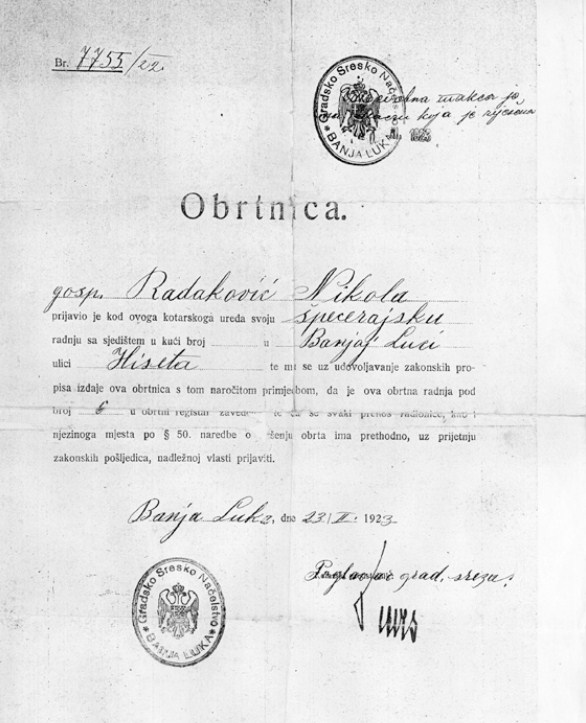 Br. 7755/22.
Gradsko Sresko Načelstvo
BANJA LUKA
taksa je
koja je
Obrtnica.
gosp. Radaković Nikola
prijavio je kod ovoga kotarskoga ureda svoju špecerajsku
radnju sa sjedištem u kući broj u Banjaj Luci
ulici Hiseta te mu se uz udovoljavanje zakonskih pro-
pisa izdaje ova obrtnica s tom naročitom primjedbom, da je ova obrtna radnja pod
broj 6 u obrtni registar zavede te da se svaki prenos radionice, kao i
njezinoga mjesta po § 50. naredbe o šenju obrta ima prethodno, uz prijetnju
zakonskih pošljedica, nadležnoj vlasti prijaviti.
Banja Luka, dne 23. II. 1923
Gradsko Sresko Načelstvo
BANJA LUKA
Poglavar grad. sreza: